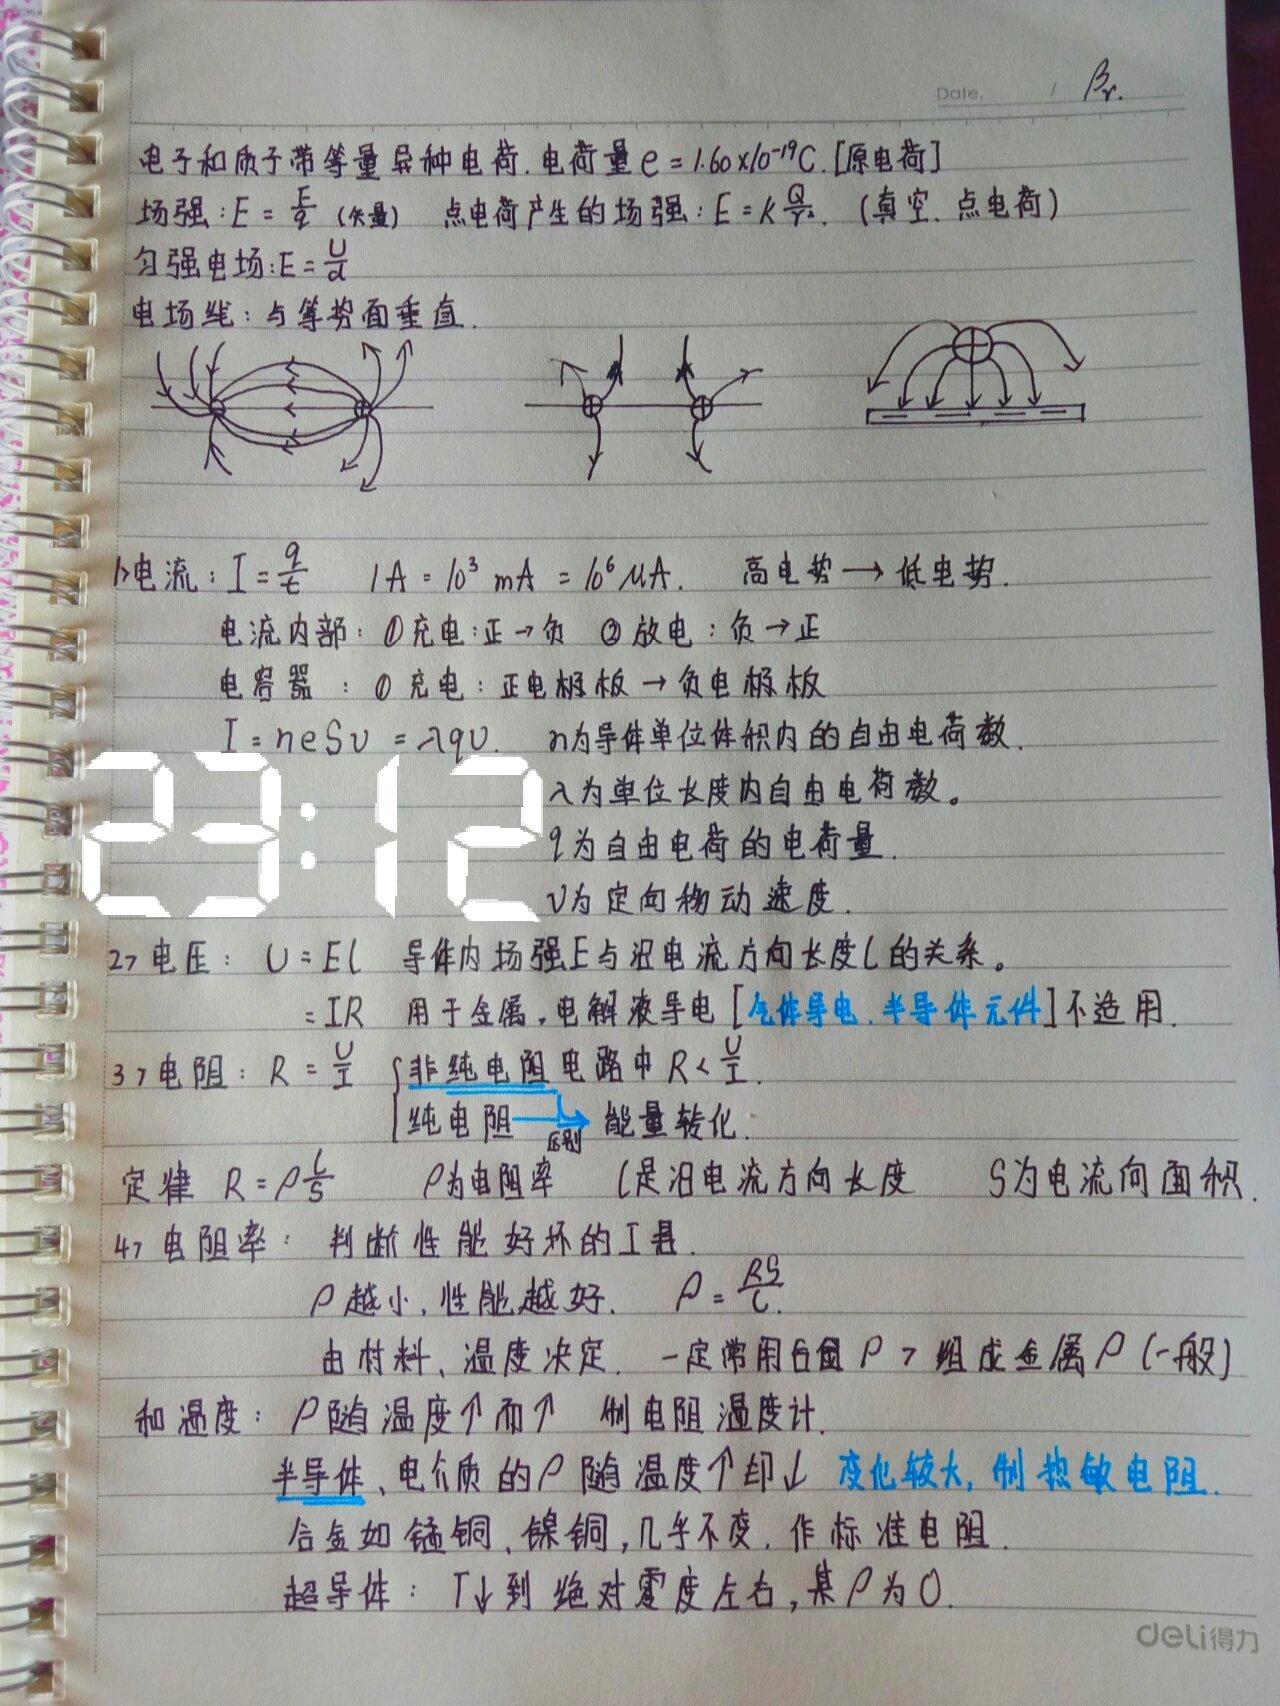 Date. / Br.
电子和质子带等量异种电荷.电荷量e=1.60×10⁻¹⁹C.[原电荷]
场强:E=F/q (矢量) 点电荷产生的场强:E=kQ/r². (真空.点电荷)
匀强电场:E=U/d
电场线:与等势面垂直.
1>电流:I=q/t 1A=10³mA=10⁶μA. 高电势→低电势.
电流内部:①充电:正→负 ②放电:负→正
电容器:①充电:正电极板→负电极板
I=neSv=λqv. n为导体单位体积内的自由电荷数.
23:12
λ为单位长度内自由电荷数。
q为自由电荷的电荷量.
v为定向移动速度.
2>电压: U=El 导体内场强E与沿电流方向长度l的关系。
=IR 用于金属,电解液导电[气体导电.半导体元件]不适用.
3>电阻:R=U/I {非纯电阻电路中R<U/I.
纯电阻→能量转化.
区别
定律 R=ρl/S ρ为电阻率 l是沿电流方向长度 S为电流向面积.
4>电阻率:判断性能好坏的工具.
ρ越小,性能越好. ρ=RS/l.
由材料、温度决定. 一定常用合金ρ>组成金属ρ(一般)
和温度:ρ随温度↑而↑ 制电阻温度计.
半导体、电介质的ρ随温度↑却↓ 变化较大,制热敏电阻.
合金如锰铜、镍铜,几乎不变.作标准电阻.
超导体:T↓到绝对零度左右,某ρ为0.
deli得力